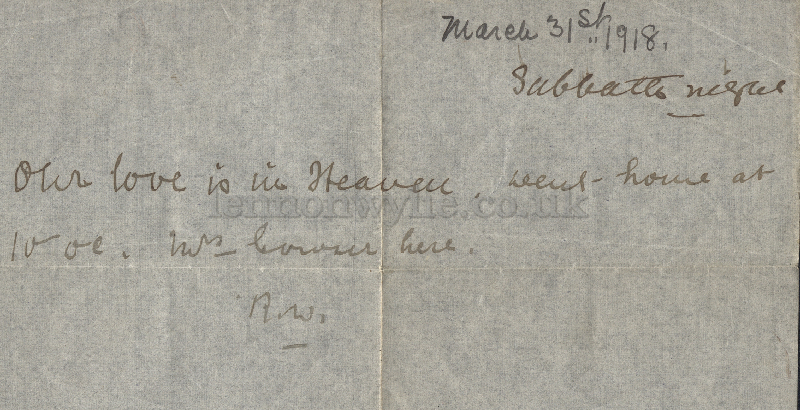 March 31st 1918.
Sabbath night
Our love is in Heaven. went home at
lennonwylie.co.uk
10 oc. Mrs here.
R.W.